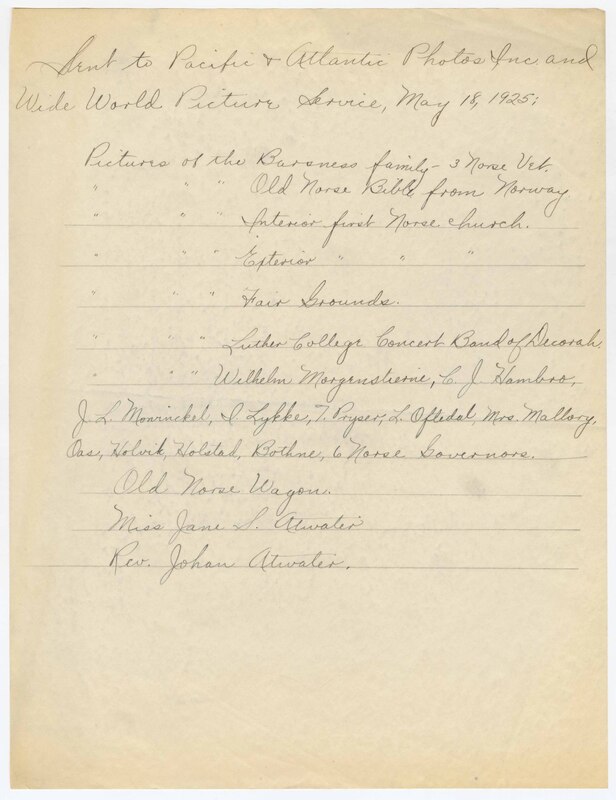 Sent to Pacific & Atlantic Photos Inc and
Wide World Picture Service, May 18, 1925:
Pictures of the Barsness family - 3 Norse Vet.
" " " Old Norse Bible from Norway
" " " Interior first Norse church.
" " " Exterior " " "
" " " Fair Grounds.
" " " Luther College Concert Band of Decorah,
" " " Wilhelm Morgenstierne, C. J. Hambro,
J. L. Mowinckel, I Lykke, T. Pryser, L. Oftedal, Mrs. Mallory,
Oas, Holvik, Holstad, Bothne, 6 Norse Governors.
Old Norse Wagon.
Miss Jane S. Atwater
Rev. Johan Atwater.